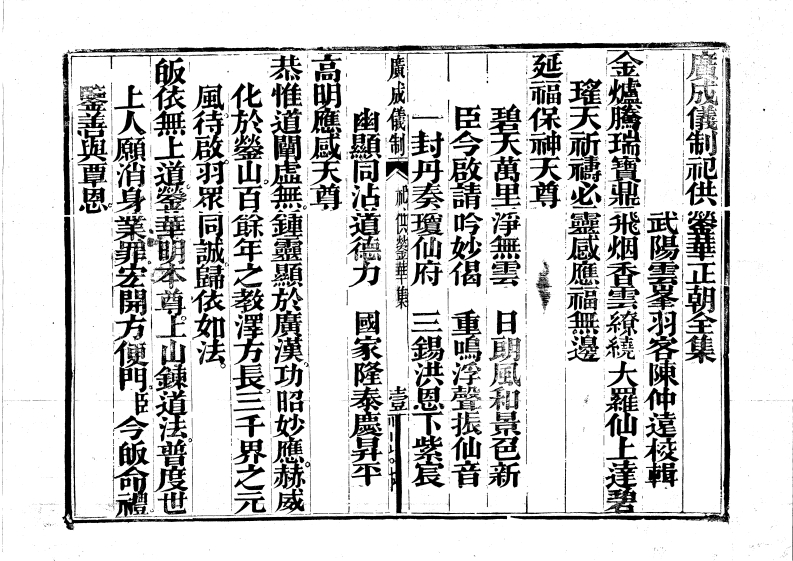 廣成儀制祀供鎣華正朝全集
武陽雲峯羽客陳仲遠校輯
金爐騰瑞寶鼎飛烟香雲繚繞大羅仙上達碧
瑤天祈禱必靈感應福無邊
延福保神天尊
碧天萬里淨無雲 日朗風和景色新
臣今啟請吟妙偈 重鳴浮聲振仙音
一封丹奏瓊仙府 三錫洪恩下紫宸
廣成儀制 祀供鎣華集 壹
幽顯同沾道德力 國家隆泰慶昇平
高明應感天尊
恭惟道闡虛無。鍾靈顯於廣漢。功昭妙應。赫威
化於鎣山。百餘年之教澤方長。三千界之元
風。待啟。羽眾同誠。歸依如法。
皈依無上道。鎣華明本尊。上山鍊道法。普度世
上人願消身業罪宏開方便門。臣今皈命禮。
鑒善與覃恩。